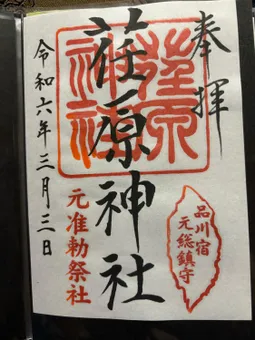 奉拝
荏原神社
荏原神社
品川宿
元総鎮守
元准勅祭社
令和六年三月三日